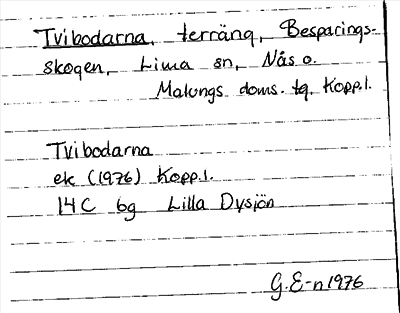 Tvibodarna, terräng, Besparings-
skogen, Lima sn, Nås o.
Malungs doms. tg, Kopp.l.
Tvibodarna
ek (1976) Kopp.l.
14C bg Lilla Dysjön
G.E-n 1976